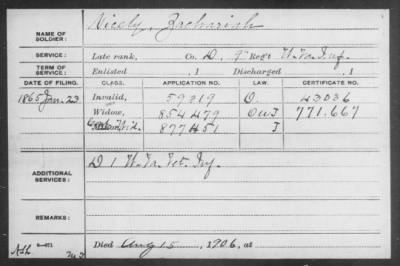 NAME OF SOLDIER: Nicely, Zachariah
SERVICE: Late rank, Co. D, 9" Reg't W. Va. Inf.
TERM OF SERVICE: Enlisted , 1 Discharged , 1
DATE OF FILING. CLASS. APPLICATION NO. LAW. CERTIFICATE NO.
1865 Jan. 23 Invalid, 59219 O. 43036
Widow, 854479 J 771.667
Wid. 877451 J
ADDITIONAL SERVICES: D 1 W. Va. Vet. Inf.
REMARKS:
Died Aug 15, 1906, at